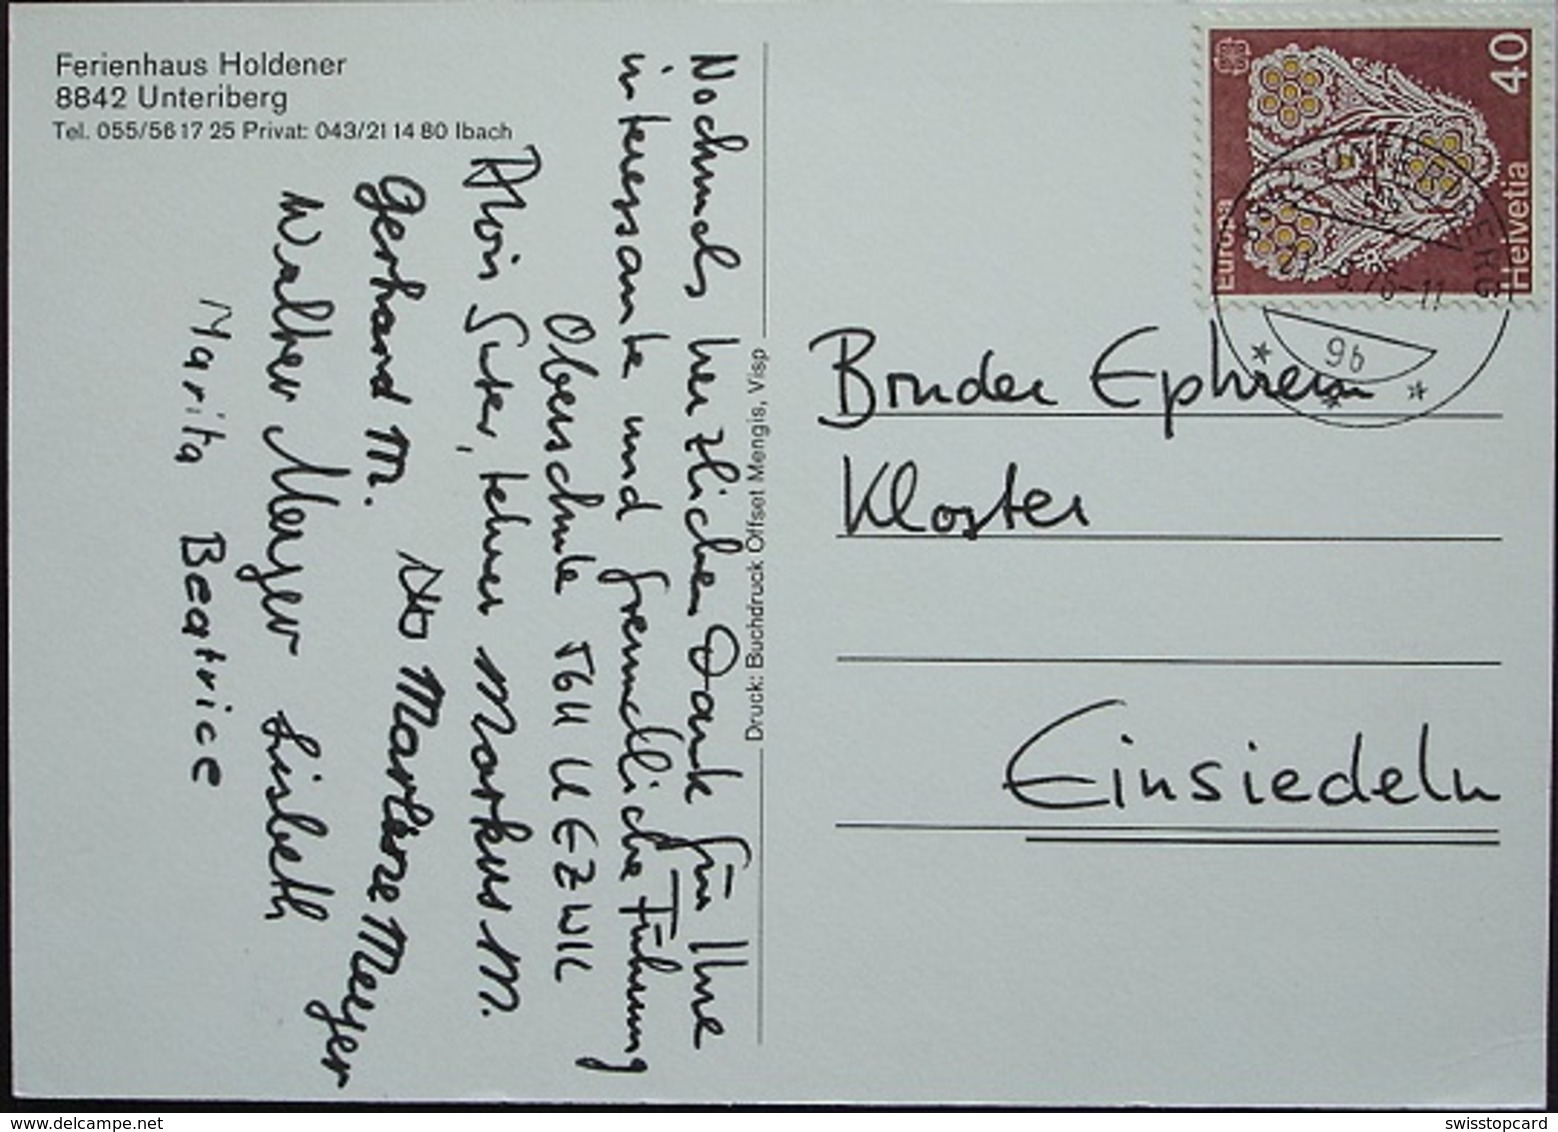 Ferienhaus Holdener
8842 Unteriberg
Tel. 055/56 17 25 Privat: 043/21 14 80 Ibach
Nochmals herzlichen Dank für Ihre
interessante und freundliche Führung
Oberschule UEZWIL
Alois Suter, Lehrer Markus M.
Gerhard M. Marlene Meyer
Walter Meyer Lisbeth
Marita Beatrice
Druck: Buchdruck Offset Mengis, Visp
40
Europa
Helvetia
9b
Bruder Ephrem
Kloster
Einsiedeln
www.delcampe.net
swisstopcard